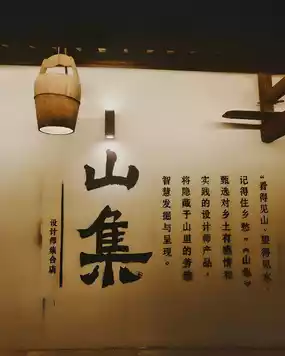 “看得见山，望得见水，
记得住乡愁”《山集》
甄选对乡土有感情和
实践的设计师产品，
将隐藏于山里的善
智慧发掘与呈现。
山集
设计师集合店